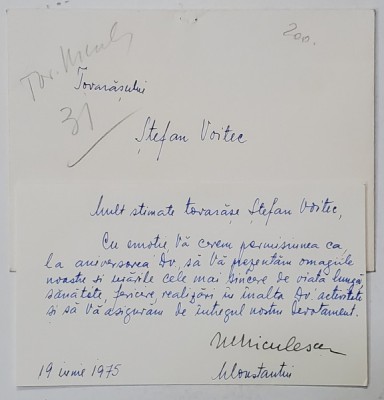 200.
Tov.
Tovarășului
31
Ștefan Voitec
Mult stimate tovarășe Ștefan Voitec,
Cu emoție Vă cerem permisiunea ca
la aniversarea Dv. să Vă prezentăm omagiile
noastre și urările cele mai sincere de viață lungă
sănătate, fericire, realizări în înalta Dv. activitate
și să Vă asigurăm de întregul nostru devotament.
Niculescu
19 iunie 1975
Constantin